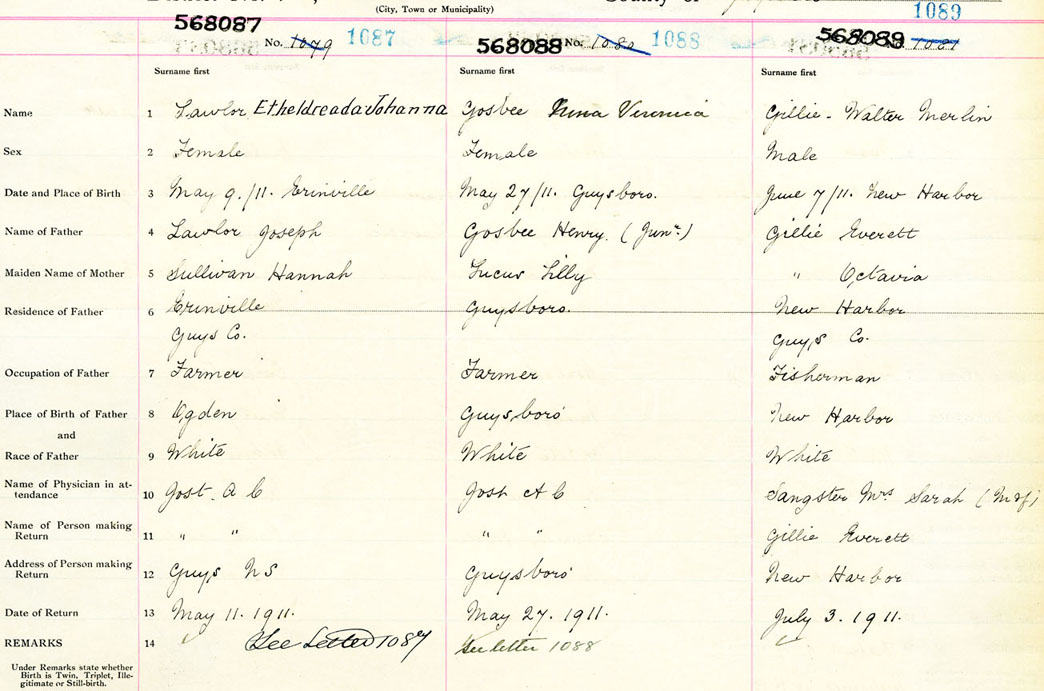 (City, Town or Municipality)
1089
568087 No. 1079 1087 568088 No. 1080 1088 568089 1081
Surname first Surname first Surname first
Name 1 Lawlor Etheldreada Johanna Gosbee Anna Veronica Gillie - Walter Merlin
Sex 2 Female Female Male
Date and Place of Birth 3 May 9./11. Erinville May 27/11. Guysboro. June 7/11. New Harbor
Name of Father 4 Lawlor Joseph Gosbee Henry. (Junr.) Gillie Everett
Maiden Name of Mother 5 Sullivan Hannah Lucus Lilly " Octavia
Residence of Father 6 Erinville Guysboro. New Harbor
Guys Co. Guys Co.
Occupation of Father 7 Farmer Farmer Fisherman
Place of Birth of Father 8 Ogden Guysboro New Harbor
and
Race of Father 9 White White White
Name of Physician in at-
tendance 10 Jost. A C Jost A C Sangster Mrs Sarah (Mdf)
Name of Person making
Return 11 " " " " Gillie Everett
Address of Person making
Return 12 Guys N S Guysboro New Harbor
Date of Return 13 May 11. 1911. May 27. 1911. July 3. 1911.
REMARKS 14 See Letter 1087 See letter 1088
Under Remarks state whether
Birth is Twin, Triplet, Ille-
gitimate or Still-birth.